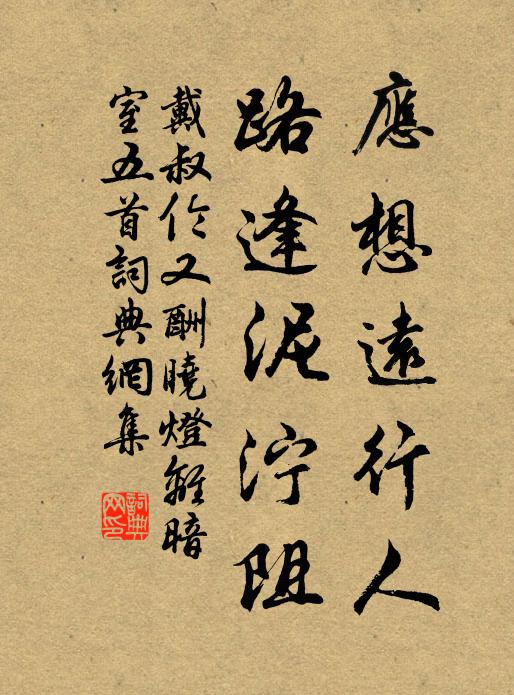 應想遠行人
路逢泥泞阻
戴叔伦又酬曉燈離暗
室五首詞典網集
詞典网印